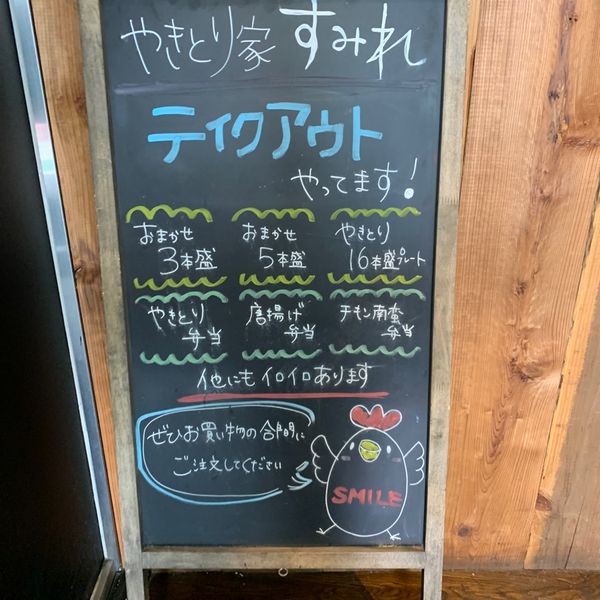 やきとり家 すみれ
テイクアウト
やってます!
おまかせ
3本盛
おまかせ
5本盛
やきとり
16本盛プレート
やきとり
弁当
唐揚げ
弁当
チキン南蛮
弁当
他にもイロイロあります
ぜひお買い物の合間に
ご注文してください
SMILE